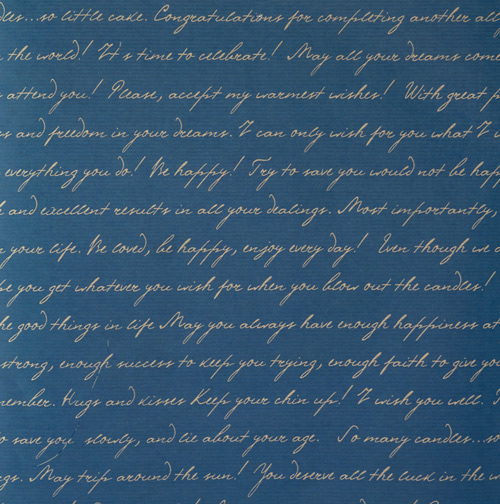 dles...so little cake. Congratulations for completing another
the world! It's time to celebrate! May all your dreams come
attend you! Please, accept my warmest wishes! With great
and freedom in your dreams. I can only wish for you what I
everything you do! Be happy! Try to save you would not be
and excellent results in all your dealings. Most importantly,
your life. Be loved, be happy, enjoy every day! Even though we
you get whatever you wish for when you blow out the candles!
he good things in life May you always have enough happiness
strong, enough success to keep you trying, enough faith to give you
member. Hugs and kisses Keep your chin up! I wish you well.
to save you slowly, and lie about your age. So many candles...so
gs. May trip around the sun! You deserve all the luck in the